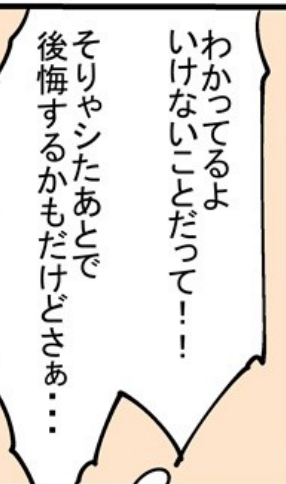 わかってるよ
いけないことだって！！
そりゃシたあとで
後悔するかもだけどさぁ・・・